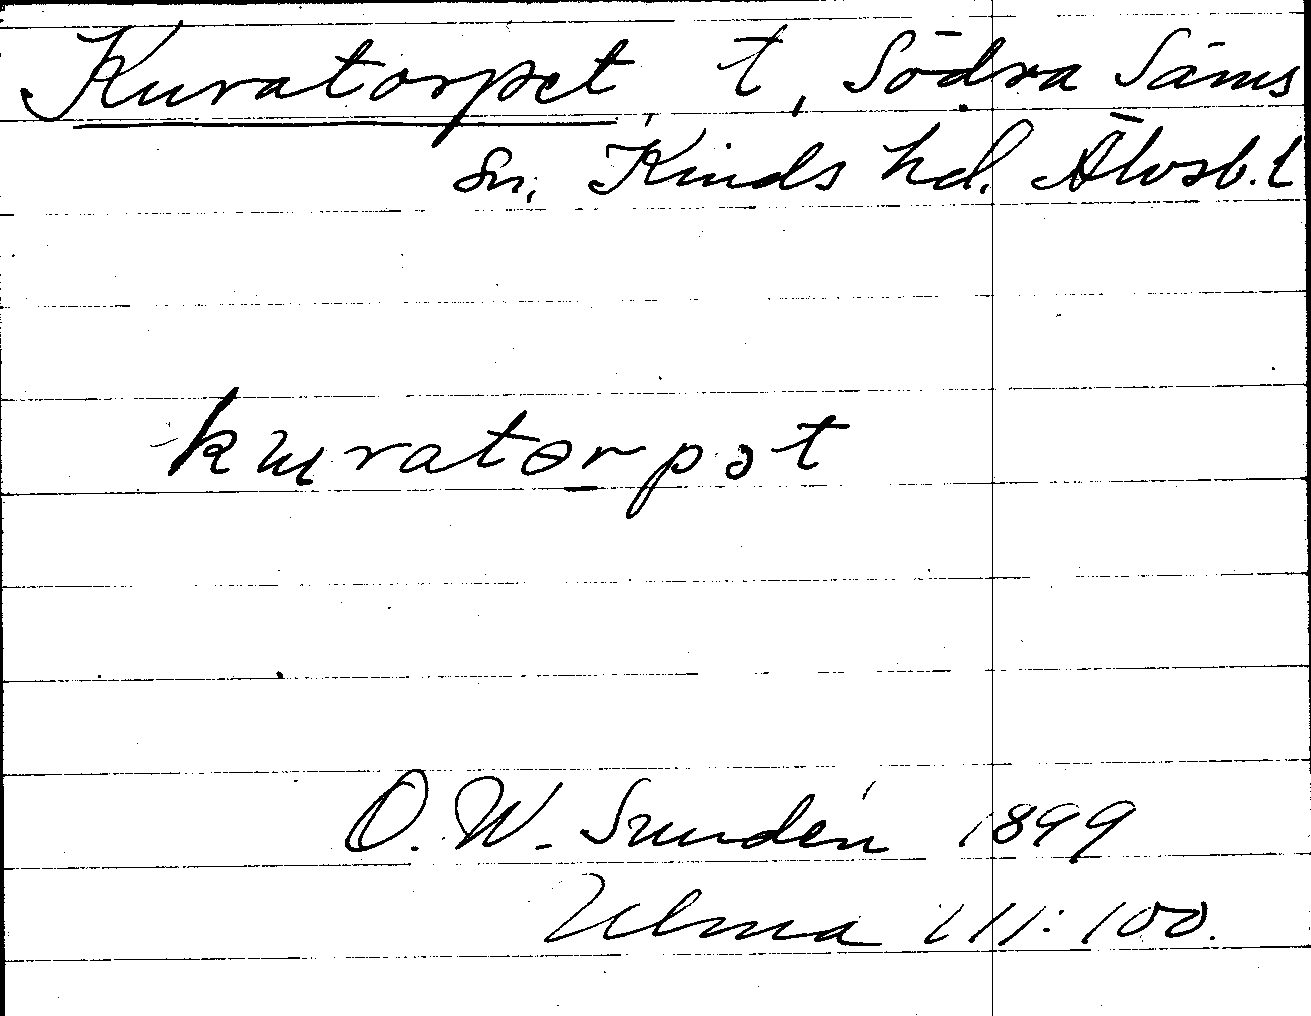 Kuratorpet t, Södra Säms
sn, Kinds hd. Älvsb. l
kuratɵrpət
O. W. Sundén 1899
Ulma 111:100.